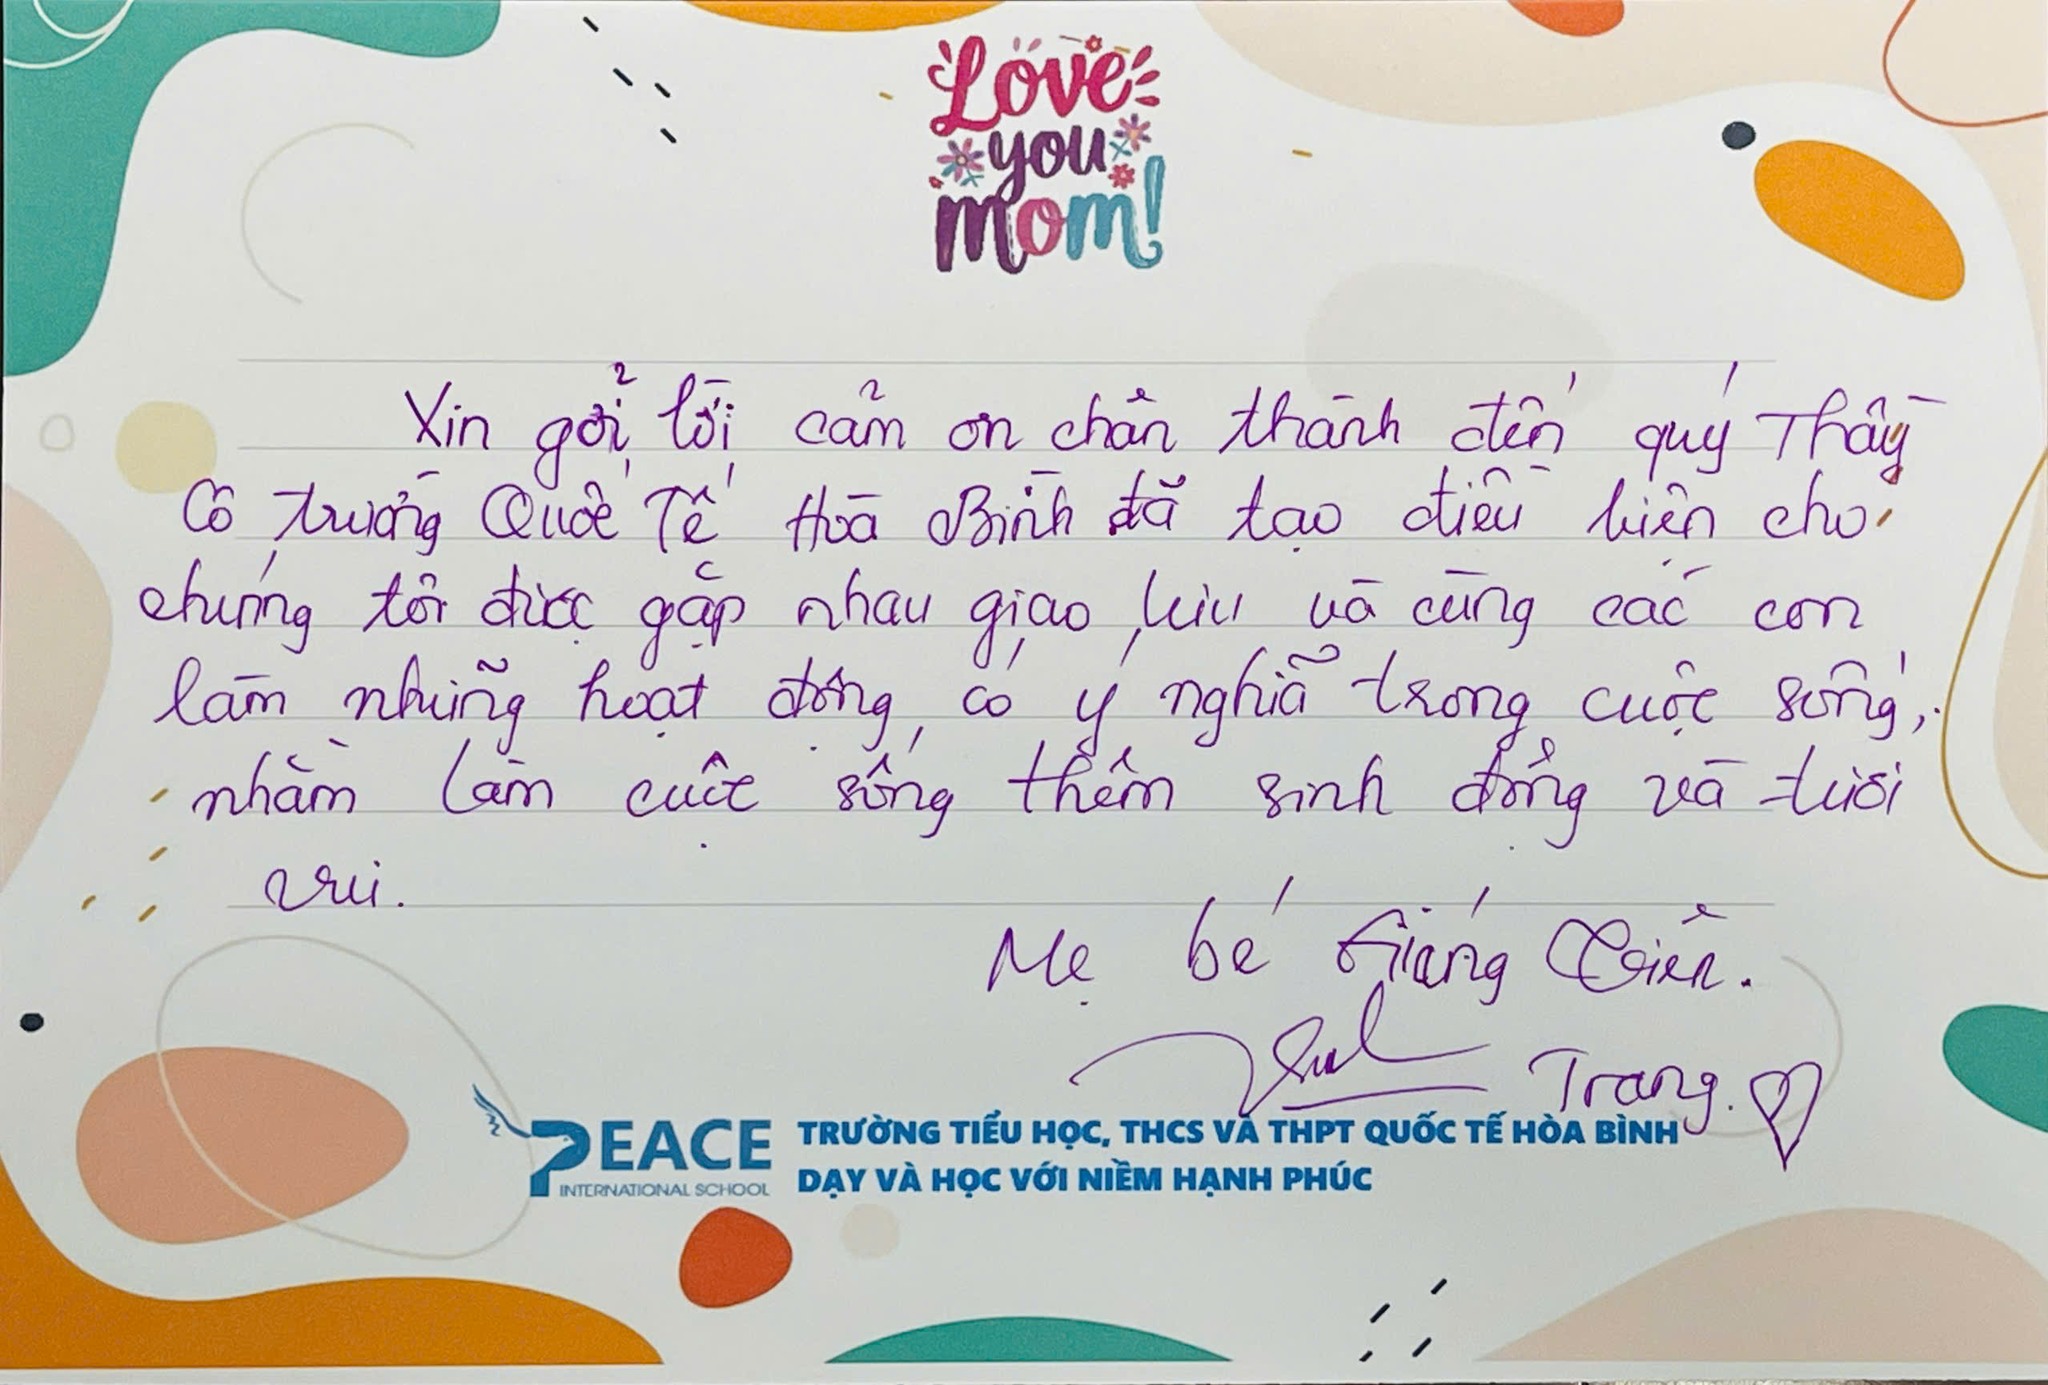 Love
you
mom!
Xin gởi lời cảm ơn chân thành đến quý Thầy
Cô trường Quốc Tế Hòa Bình đã tạo điều kiện cho
chúng tôi được gặp nhau giao lưu và cùng các con
làm những hoạt động có ý nghĩa trong cuộc sống,
nhằm làm cuộc sống thêm sinh động và tươi
vui.
Mẹ bé Giáng
Trang.
PEACE
INTERNATIONAL SCHOOL
TRƯỜNG TIỂU HỌC, THCS VÀ THPT QUỐC TẾ HÒA BÌNH
DẠY VÀ HỌC VỚI NIỀM HẠNH PHÚC